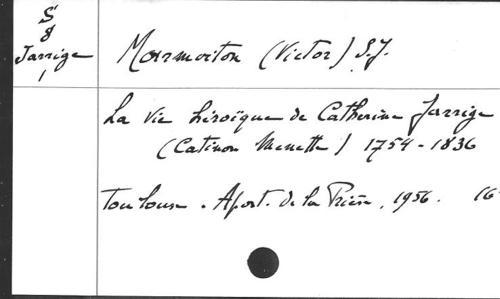 S
8
Jarrige
1
Marmoiton (Victor) S.J.
La Vie héroïque de Catherine Jarrige
(Catinon Menette) 1754-1836
Toulouse. Apost. de la Prière, 1956. 16